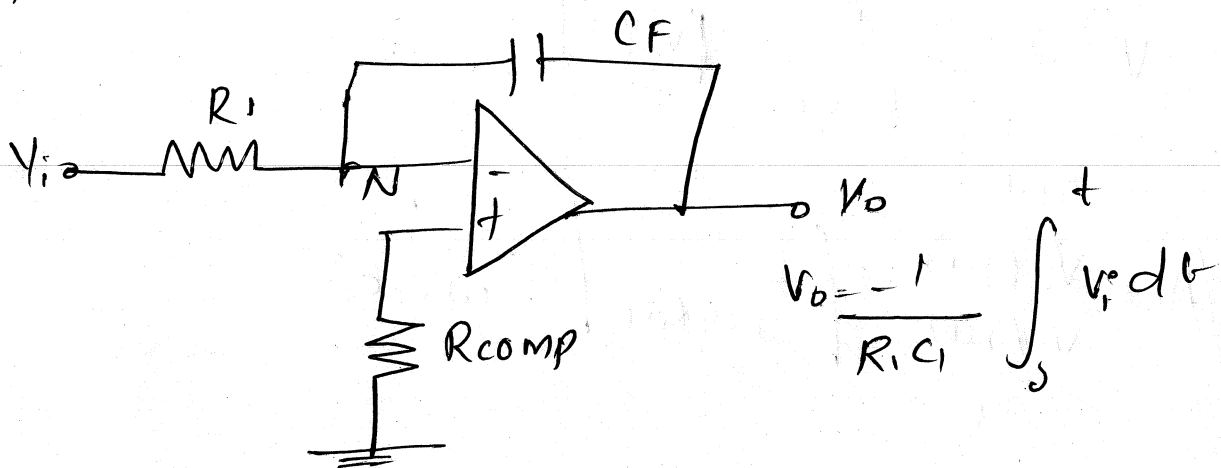 CF
R1
Vi
N
-
+
Vo
Rcomp
Vo = -1/R1C1 ∫0t Vi dt